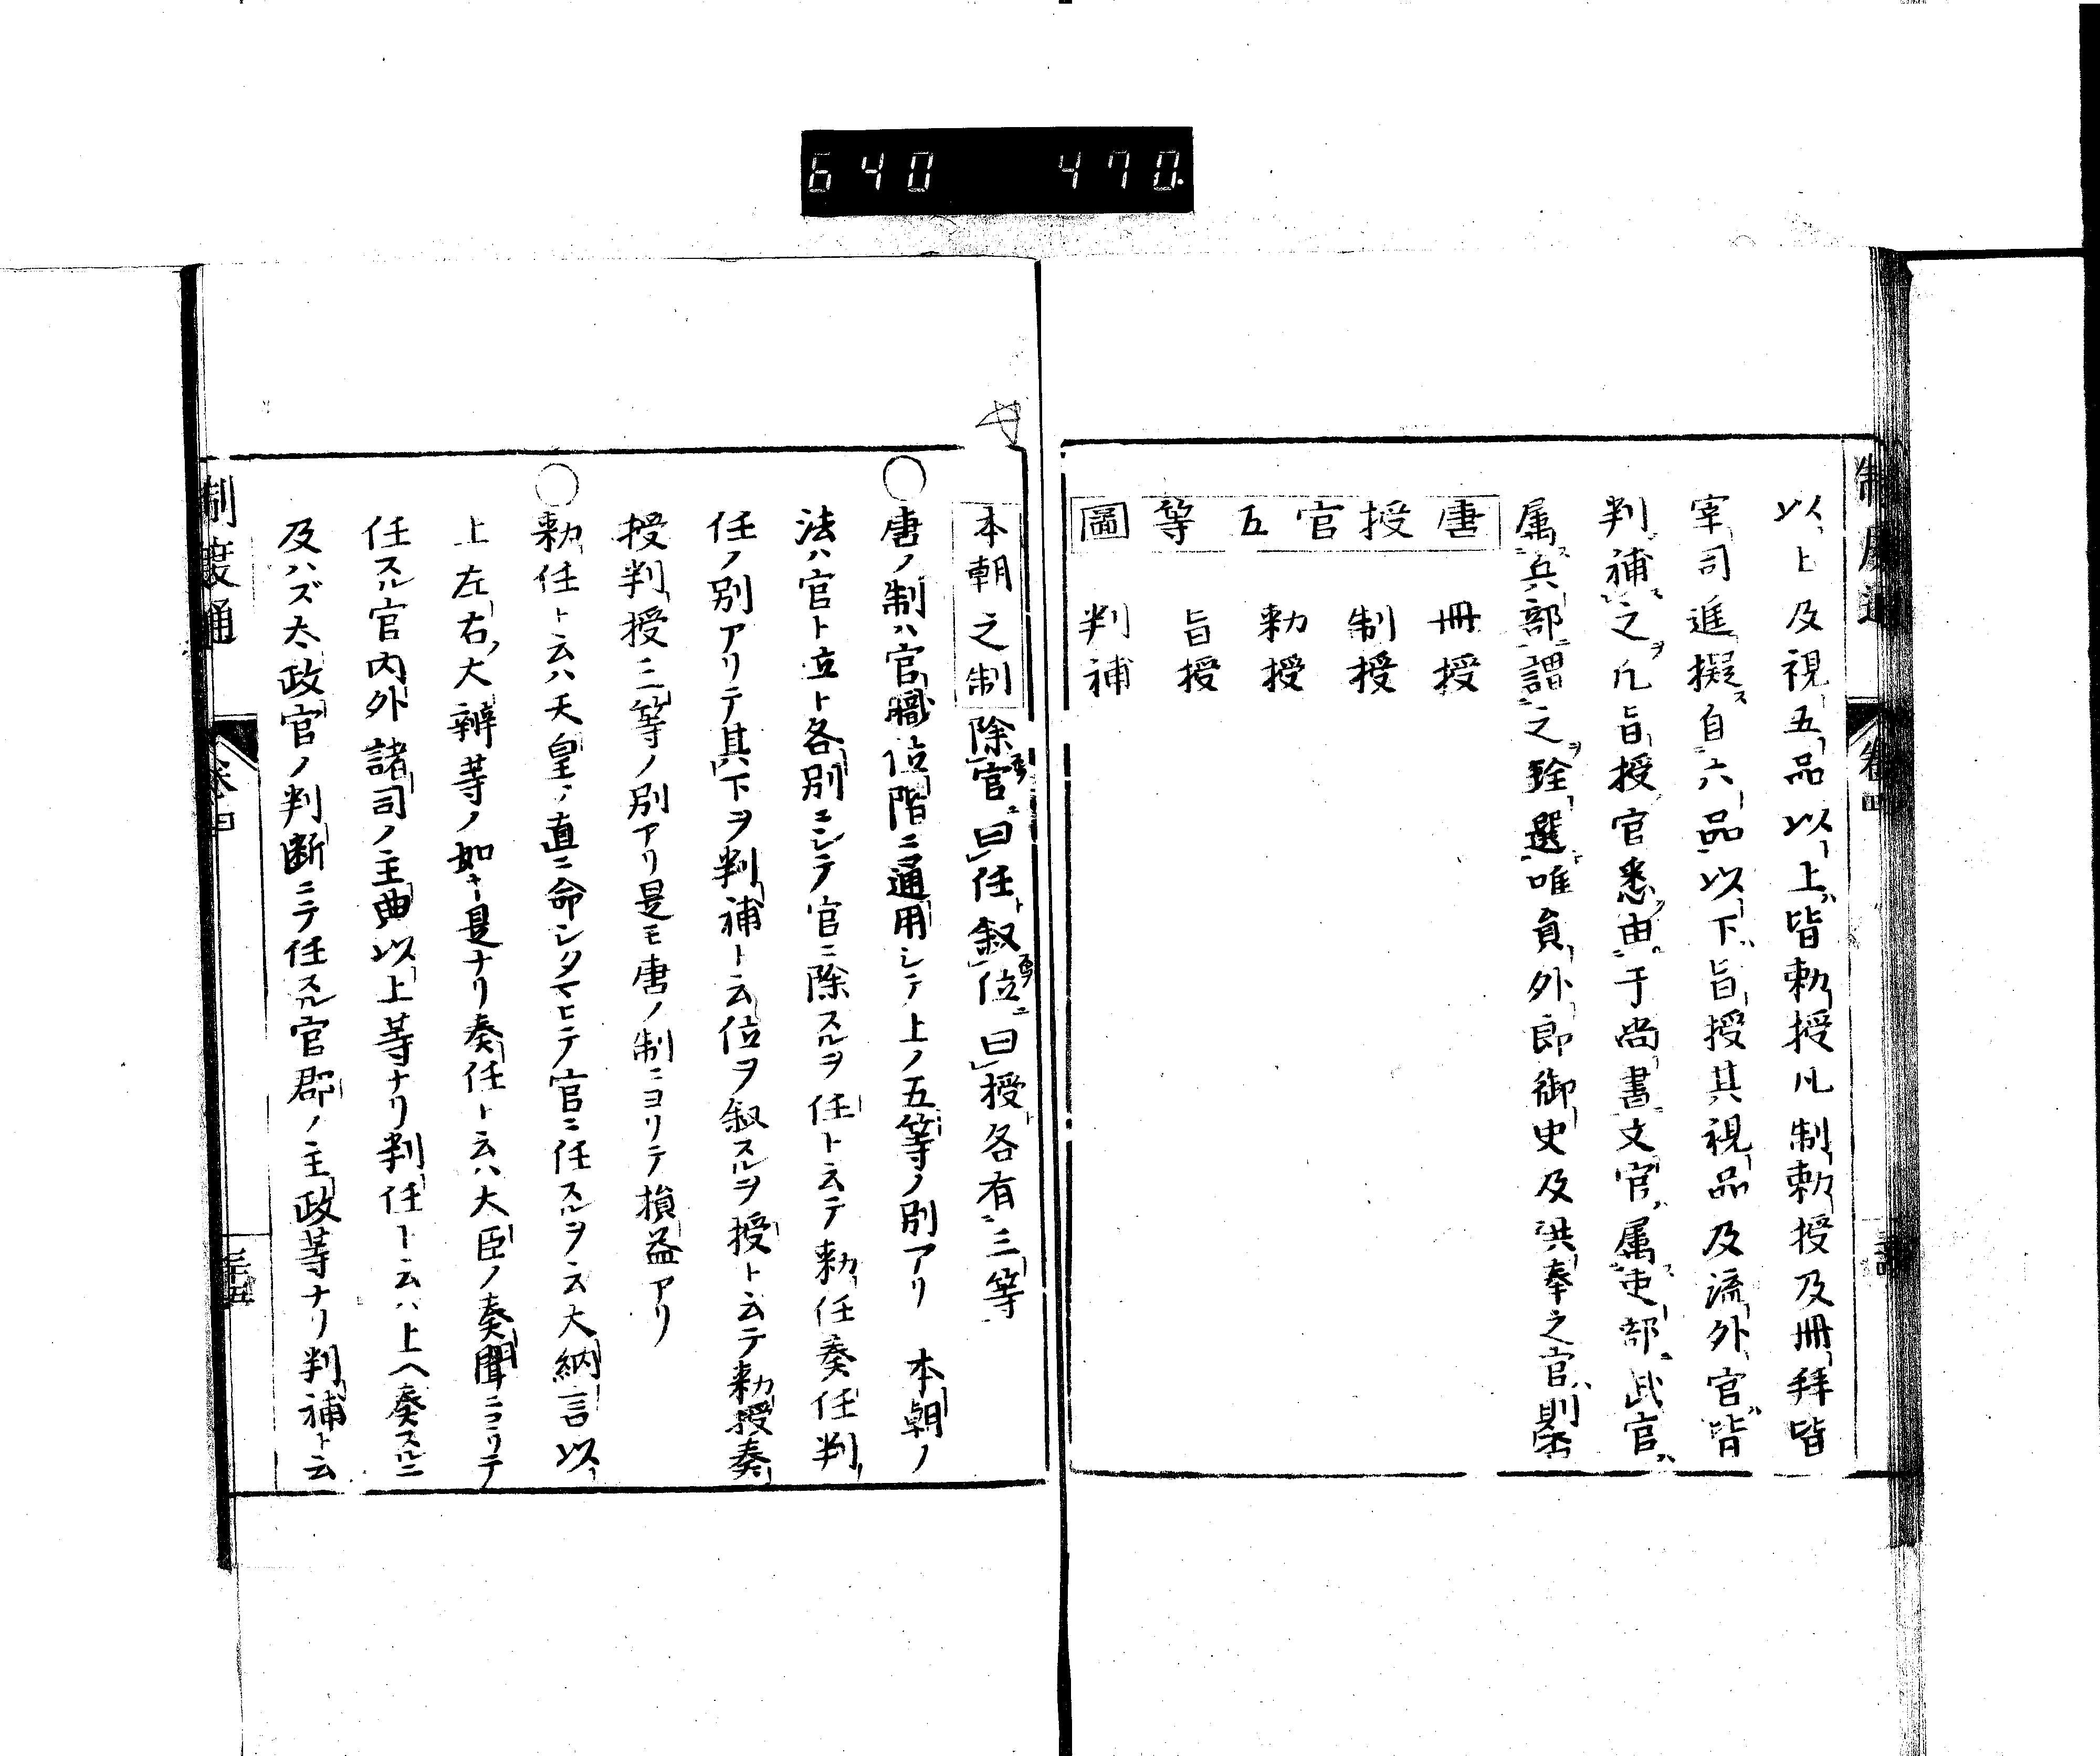 640 470.
制度通 卷四
以上及視五品以上皆勅授凡制勅授及冊拜皆
宰司進擬自六品以下旨授其視品及流外官皆
判補之凡旨授官悉由于尚書文官属吏部武官
属兵部謂之銓選唯員外郎御史及洪奉之官則否
唐授官五等圖
冊授
制授
勅授
旨授
判補
本朝之制 除官曰任叙位曰授各有三等
○唐ノ制ハ官職位階ニ通用シテ上ノ五等ノ別アリ 本朝ノ
法ハ官ト立ト各別ニシテ官ニ除スルヲ任ト云テ勅任奏任判
任ノ別アリテ其下ヲ判補ト云位ヲ叙スルヲ授ト云テ勅授奏
授判授三等ノ別アリ是モ唐ノ制ニヨリテ損益アリ
○勅任ト云ハ天皇ノ直ニ命シタマヒテ官ニ任スルヲ云大納言以
上左右大辨等ノ如キ是ナリ奏任ト云ハ大臣ノ奏聞ニヨリテ
任スル官内外諸司ノ主典以上等ナリ判任ト云ハ上ヘ奏スルニ
及ハズ太政官ノ判断ニテ任スル官郡ノ主政等ナリ判補ト云
制度通 卷四 三十五